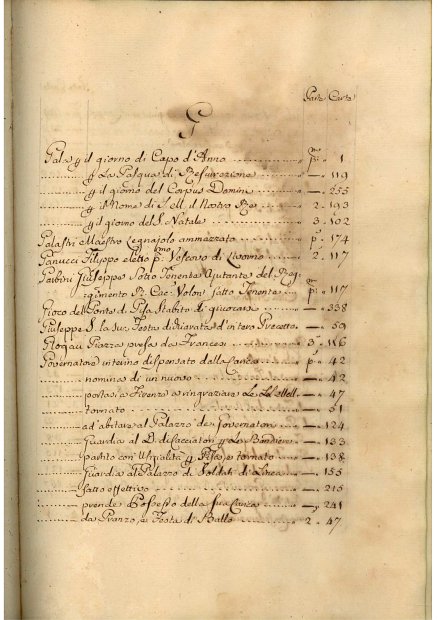 Parte Carte
G
Gala p il giorno di Capo d'Anno p.ma 1
p La Pasqua di Resurrezione — 119
p il giorno del Corpus Domini — 255
p il Nome di S. ell. il Nostro Re 2. 193
p il giorno del S. Natale 3. 102
Galastri Maestro Legnajolo ammazzato p.a 174
Ganucci Filippo eletto p.mo Vescovo di Livorno 2. 117
Giuseppe Sotto Tenente Ajutante del Reg-
gimento R. Volon. fatto Tenente p.ma 117
Gioco del Ponte di Pisa Stabito di giocarsi — 338
Giuseppe S. la sua Festa dichiarata d'intero Precetto — 59
Piazza presa da Francesi 3. 116
Governatore interino dispensato dalla Carica p.a 42
nomina di un nuovo — 42
portasi a Firenze a ringraziare Le LL. — 47
tornato — 51
ad'abitare al Palazzo de Governatori — 124
Guardia al D. di facciatori p Le Bandiere — 133
partito con Ufizialità p Pisa, e tornato — 138
Guardia al Palazzo di Soldati di Linea — 155
fatto effettivo — 215
prende Possesso della sua Carica — 241
da Pranzo, e Festa di Ballo 2. 47